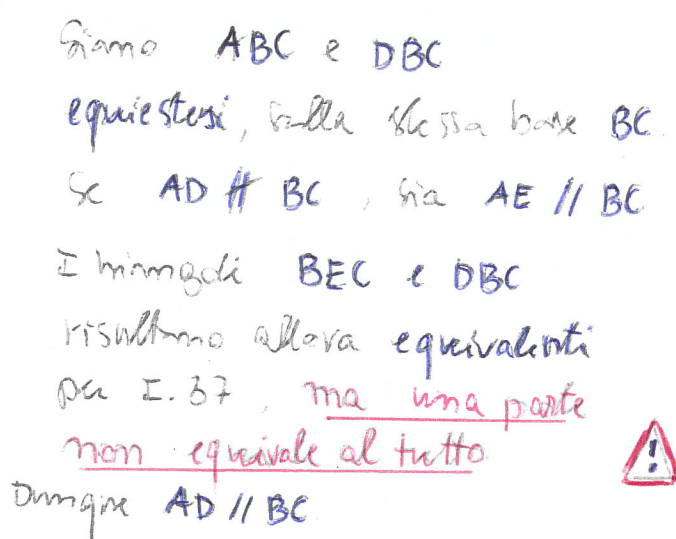 Siano ABC e DBC
equiestesi, sulla stessa base BC.
Se AD ∦ BC, sia AE // BC
I triangoli BEC e DBC
risultano allora equivalenti
per I.37, ma una parte
non equivale al tutto
Dunque AD // BC